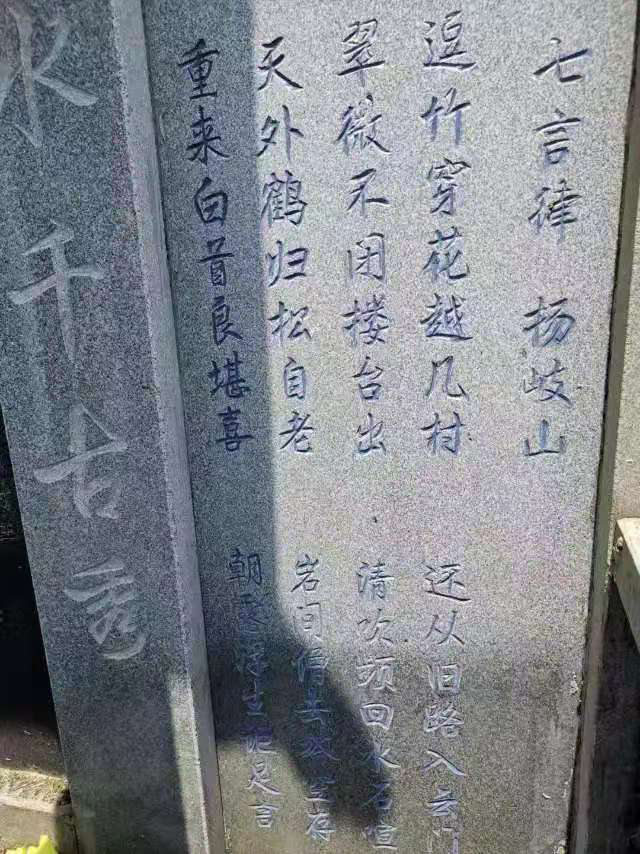 七言律 扬岐山
逗竹穿花越几村 还从旧路入云门
翠微不闭楼台出 清吹频回水石喧
天外鹤归松自老 岩间僧 空存
重来白首良堪喜 朝露浮生 足言
水千古秀